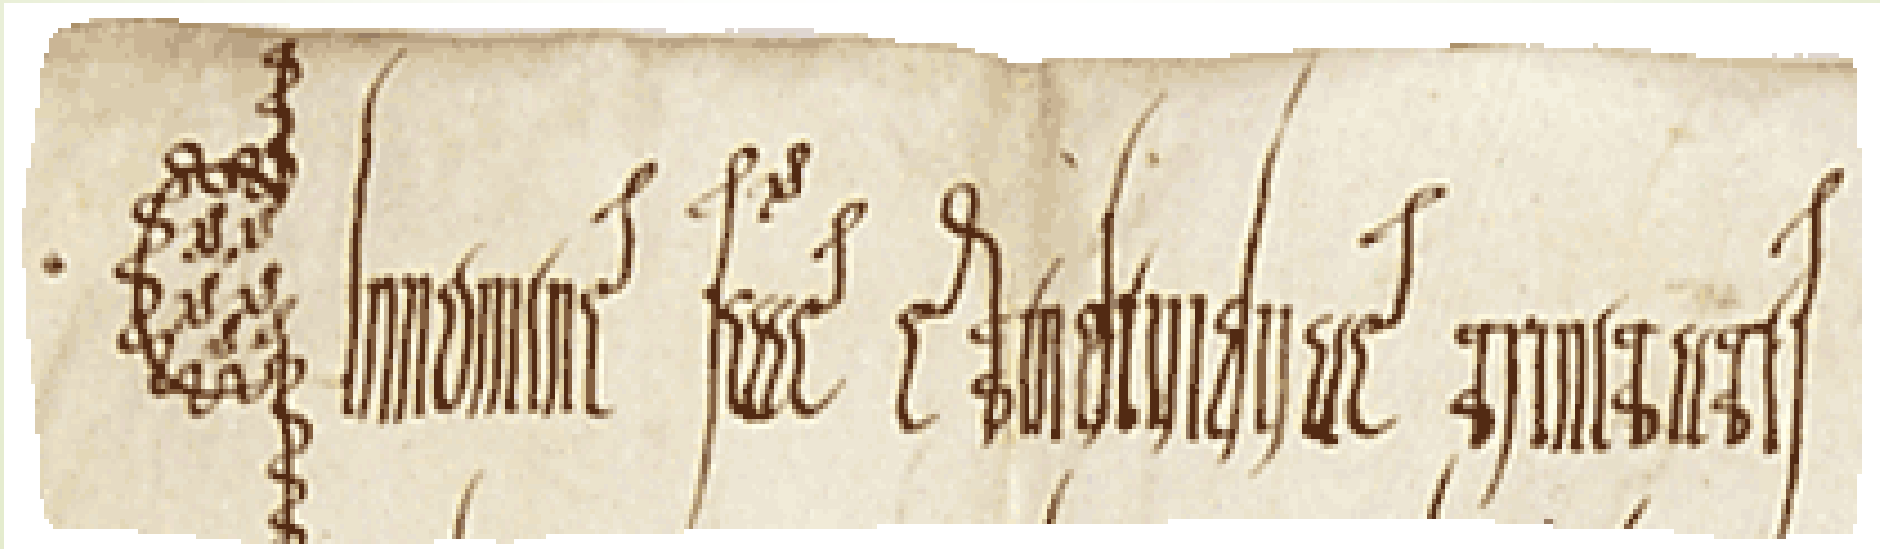 In nomine sce et indiuidue trinitatis